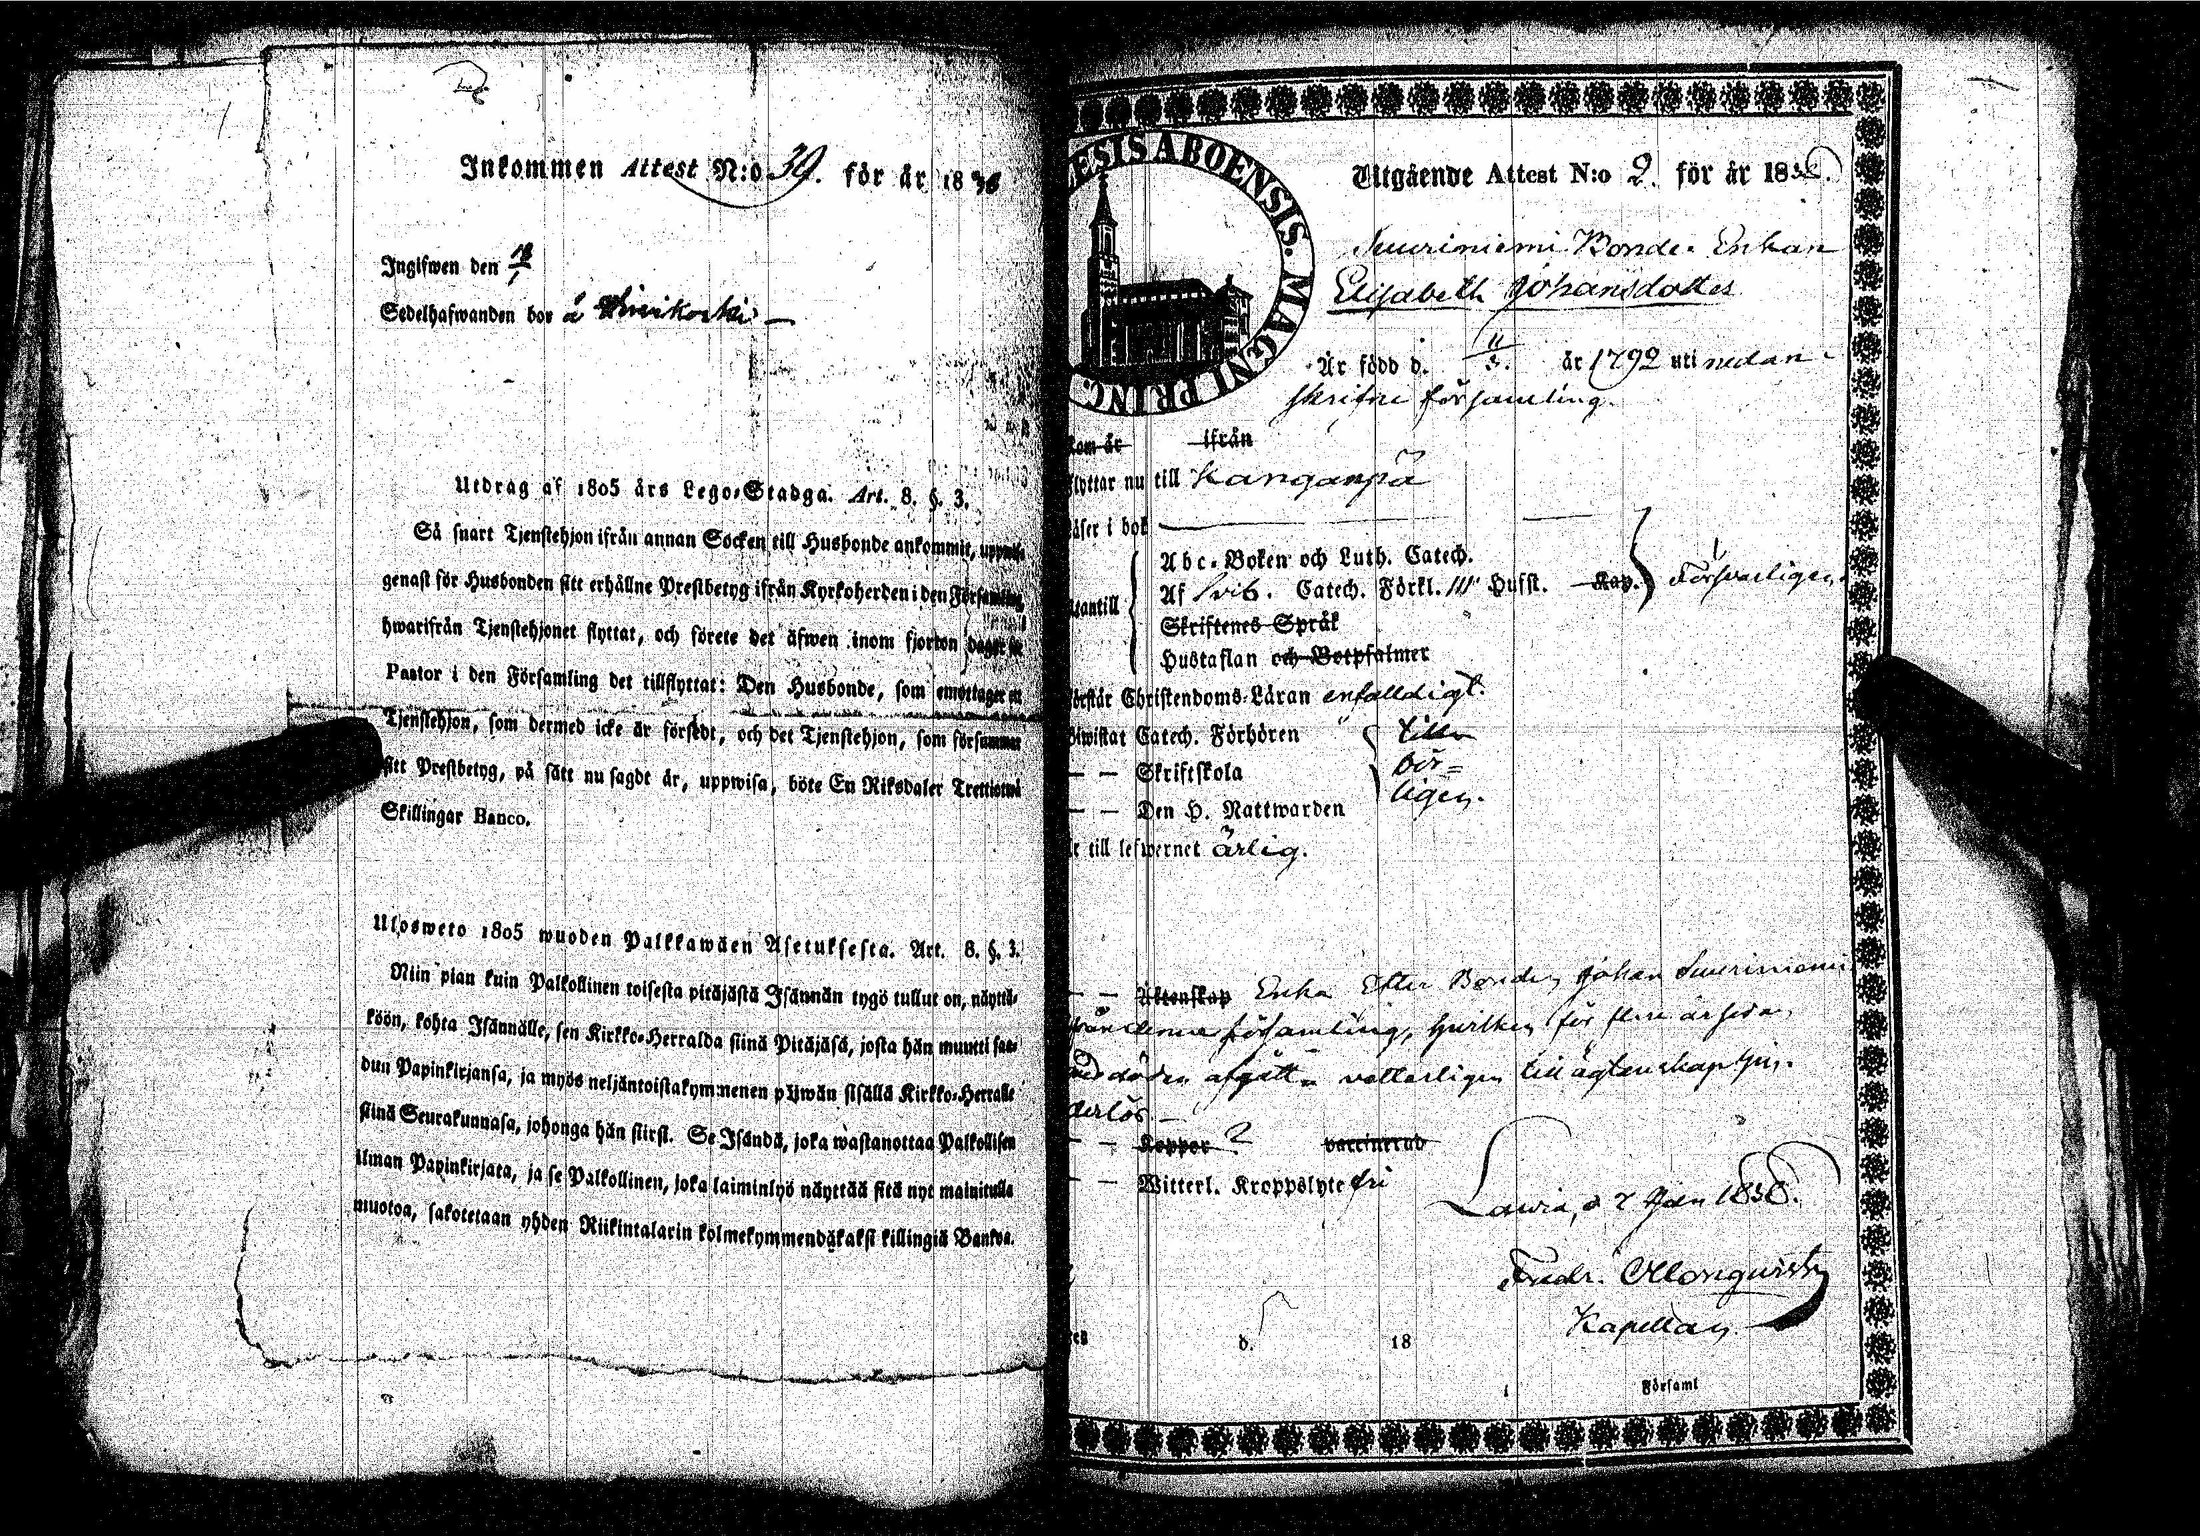 Inkommen Attest N:o 39. för år 1836
Ingifwen den 18/1
Sedelhafwanden bor å
Utdrag af 1805 års Lego-Stadga. Art. 8. §. 3.
Så snart Tjenstehjon ifrån annan Socken till Husbonde ankommit, uppwise
genast för Husbonden sitt erhållne Prestbetyg ifrån Kyrkoherden i den Församling,
hwarifrån Tjenstehjonet flyttat, och förete det äfwen inom fjorton dagar för
Pastor i den Församling det tillflyttat: Den Husbonde, som emottager ett
Tjenstehjon, som dermed icke är försedt, och det Tjenstehjon, som försummar
sitt Prestbetyg, på sätt nu sagdt är, uppwisa, böte En Riksdaler Trettiotwå
Skillingar Banco.
Ulosweto 1805 wuoden Palkkawäen Asetuksesta. Art. 8. §. 3.
Niin pian kuin Palkollinen toisesta pitäjästä Isännän tygö tullut on, näyttä-
köön, kohta Isännälle, sen Kirkko-Herralda siinä Pitäjäsä, josta hän muutti saa-
dun Papinkirjansa, ja myös neljäntoistakymmenen päiwän sisällä Kirkko-Herralle
siinä Seurakunnasa, johonga hän siirsi. Se Isändä, joka wastanottaa Palkollisen
ilman Papinkirjata, ja se Palkollinen, joka laiminlyö näyttää sitä nyt mainitulla
muotoa, sakotetaan yhden Riikintalarin kolmekymmendäkaksi killingiä Bankoa.
ESIS ABOENSIS. MAGNI PRINC.
Utgående Attest N:o 2. för år 1836.
Suuriniemi Bonde Enkan
Elisabeth Johansdotter
Är född d. 11/3. år 1792 uti nedan-
skrifne församling.
kom år ifrån
flyttar nu till Kanganpä
läser i bok
Abc-Boken och Luth. Catech.
Af Svib. Catech. Förkl. III Hufst. Kap. Försvarligen
utantill
Skriftenes Språk
Hustaflan och Botpsalmer
förstår Christendoms-Läran enfalldigt.
biwistat Catech. Förhören till-
— — Skriftskola bör=
— — Den H. Nattwarden ligen.
är till lefwernet ärlig.
— — Äktenskap Enka Efter Bonden Johan Suuriniemi
från denna församling, hvilken för flere år sedan
med döden afgått, vetterligen till ägtenskap hin-
derlös —
— — Koppor ? vaccinerad
— — Witterl. Kroppslyte fri
Lawia, d 7 Jan 1836.
Fredr. Ollonquist
Kapellan
d. 18
i Församl